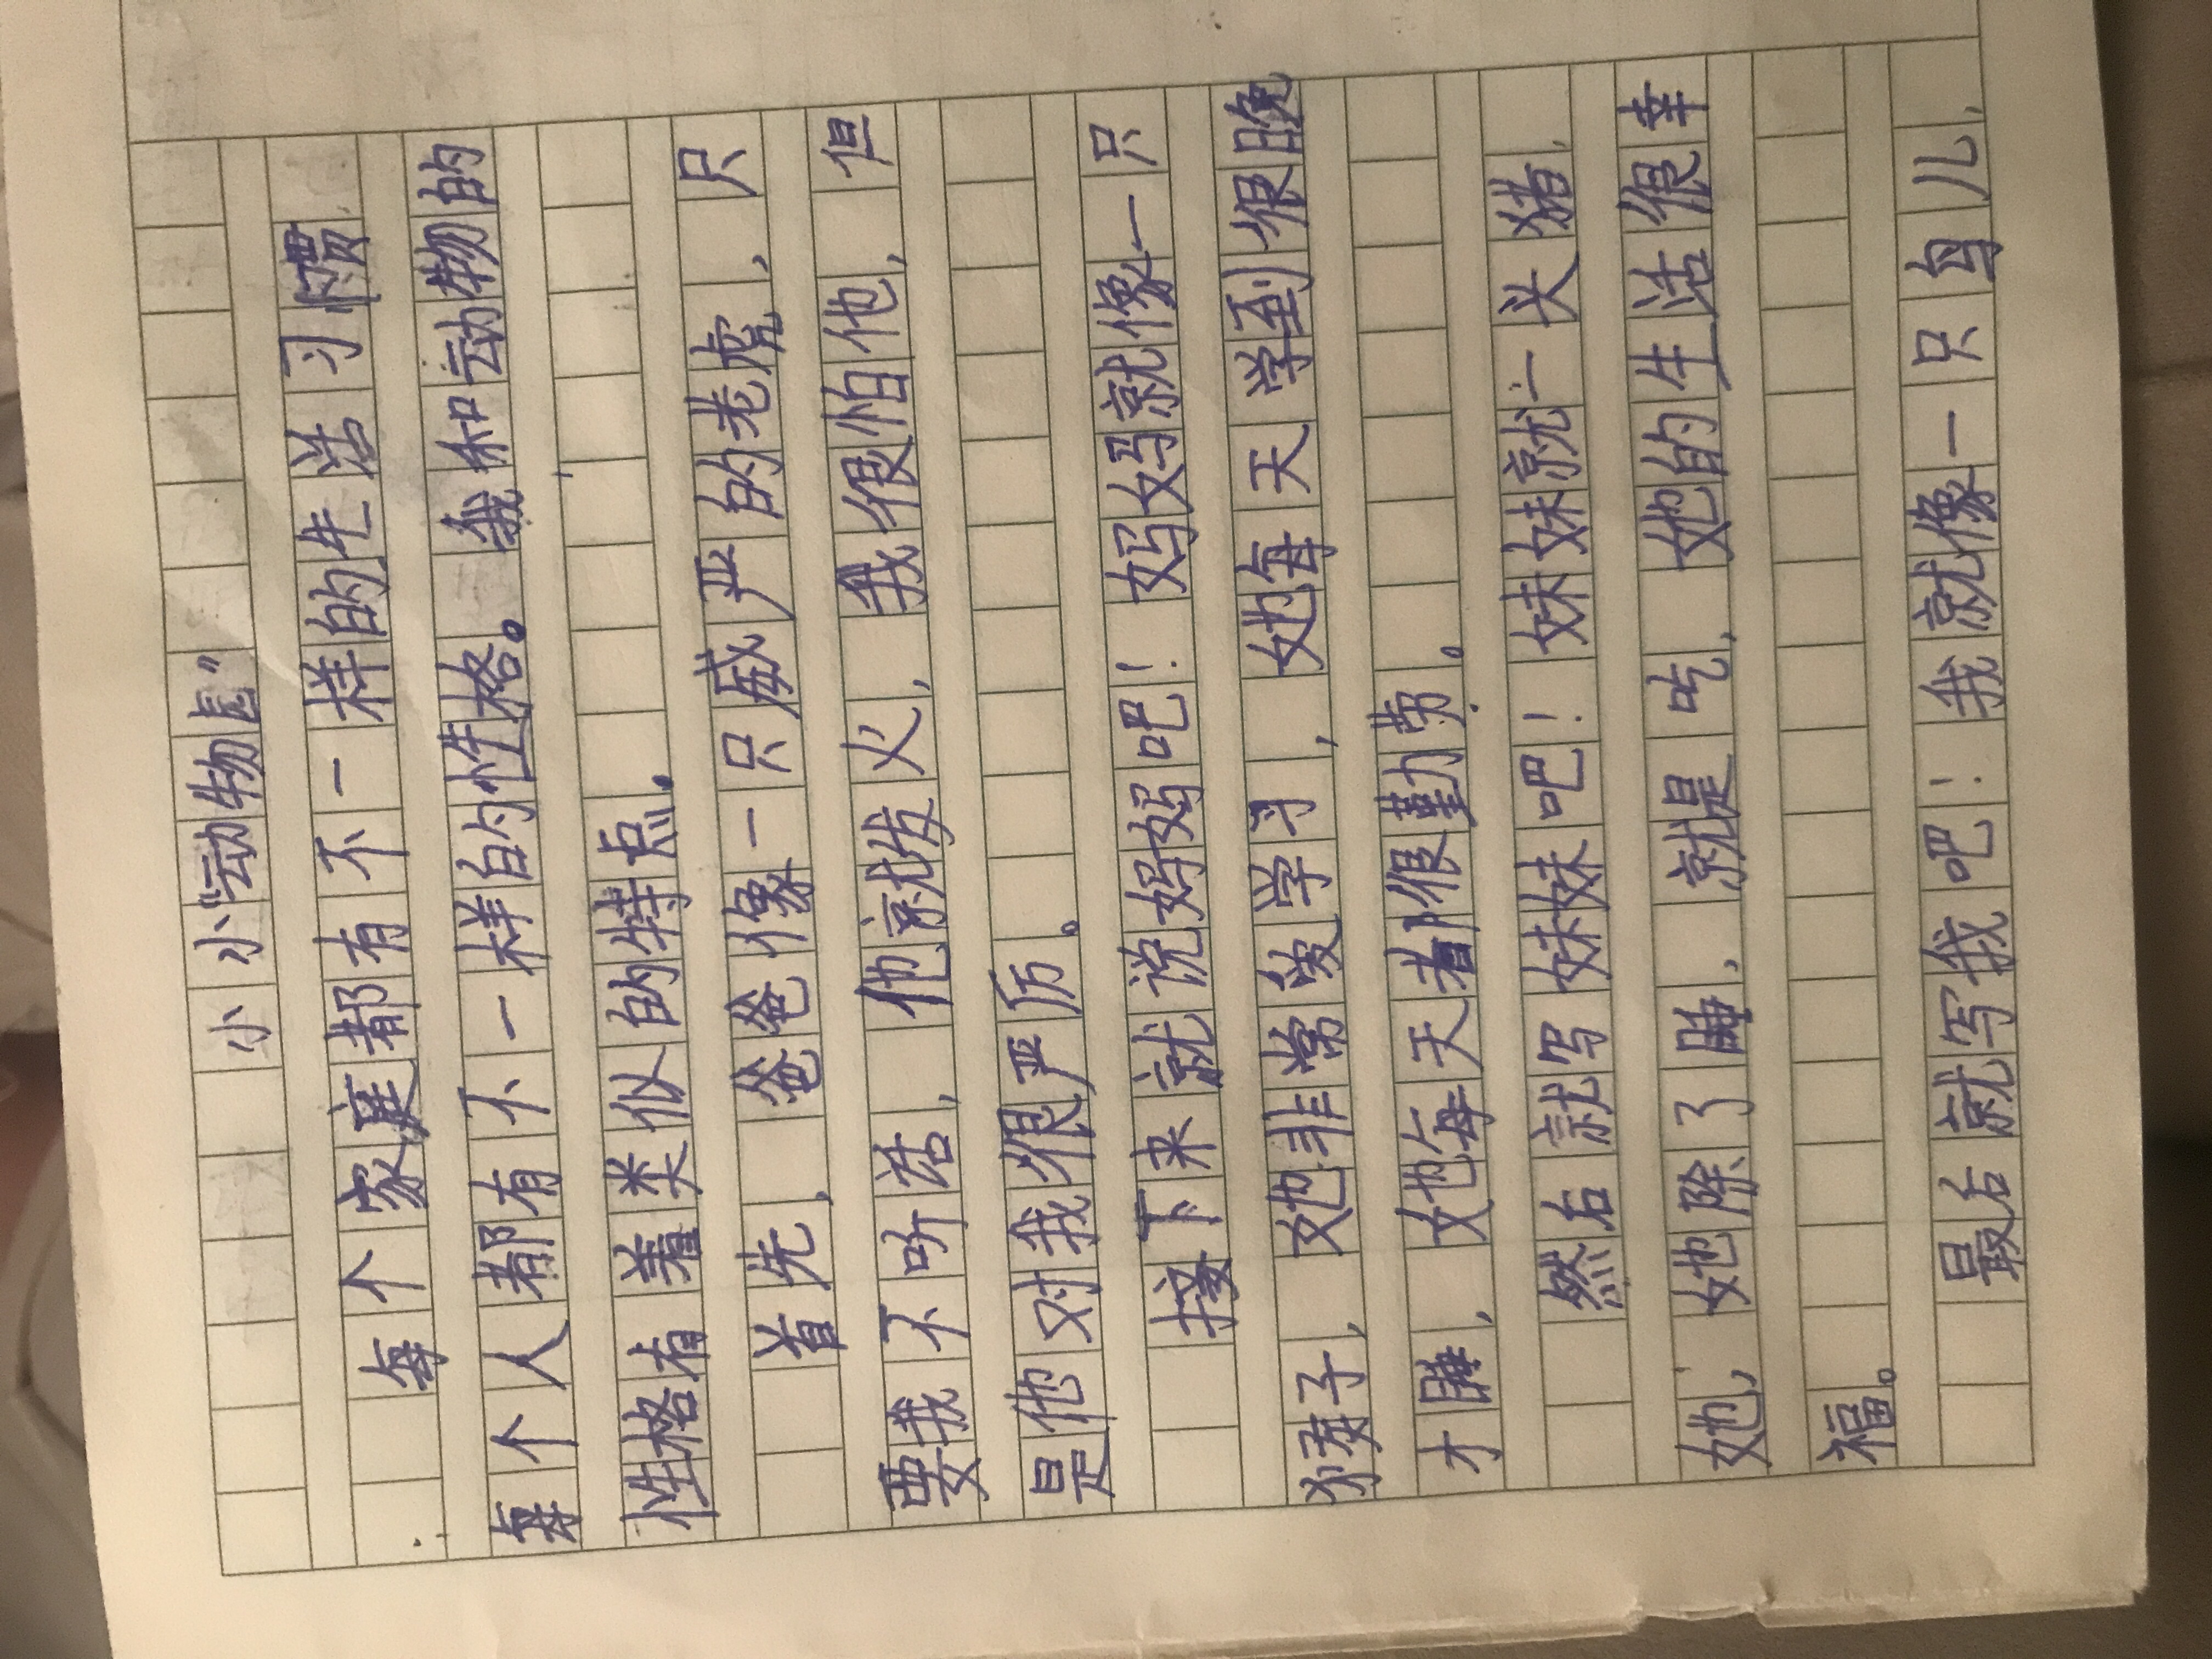 小小“动物园”
每个家庭都有不一样的生活习惯,
每个人都有不一样的性格。我和动物的
性格有着类似的特点。
首先,爸爸像一只威严的老虎,只
要我不听话,他就发火,我很怕他,但
是他对我很严厉。
接下来就说妈妈吧!妈妈就像一只
猴子,她非常爱学习,她每天学到很晚
才睡,她每天都很勤劳。
然后就写妹妹吧!妹妹就一头猪,
她,她除了睡,就是吃,她的生活很幸
福。
最后就写我吧!我就像一只鸟儿,